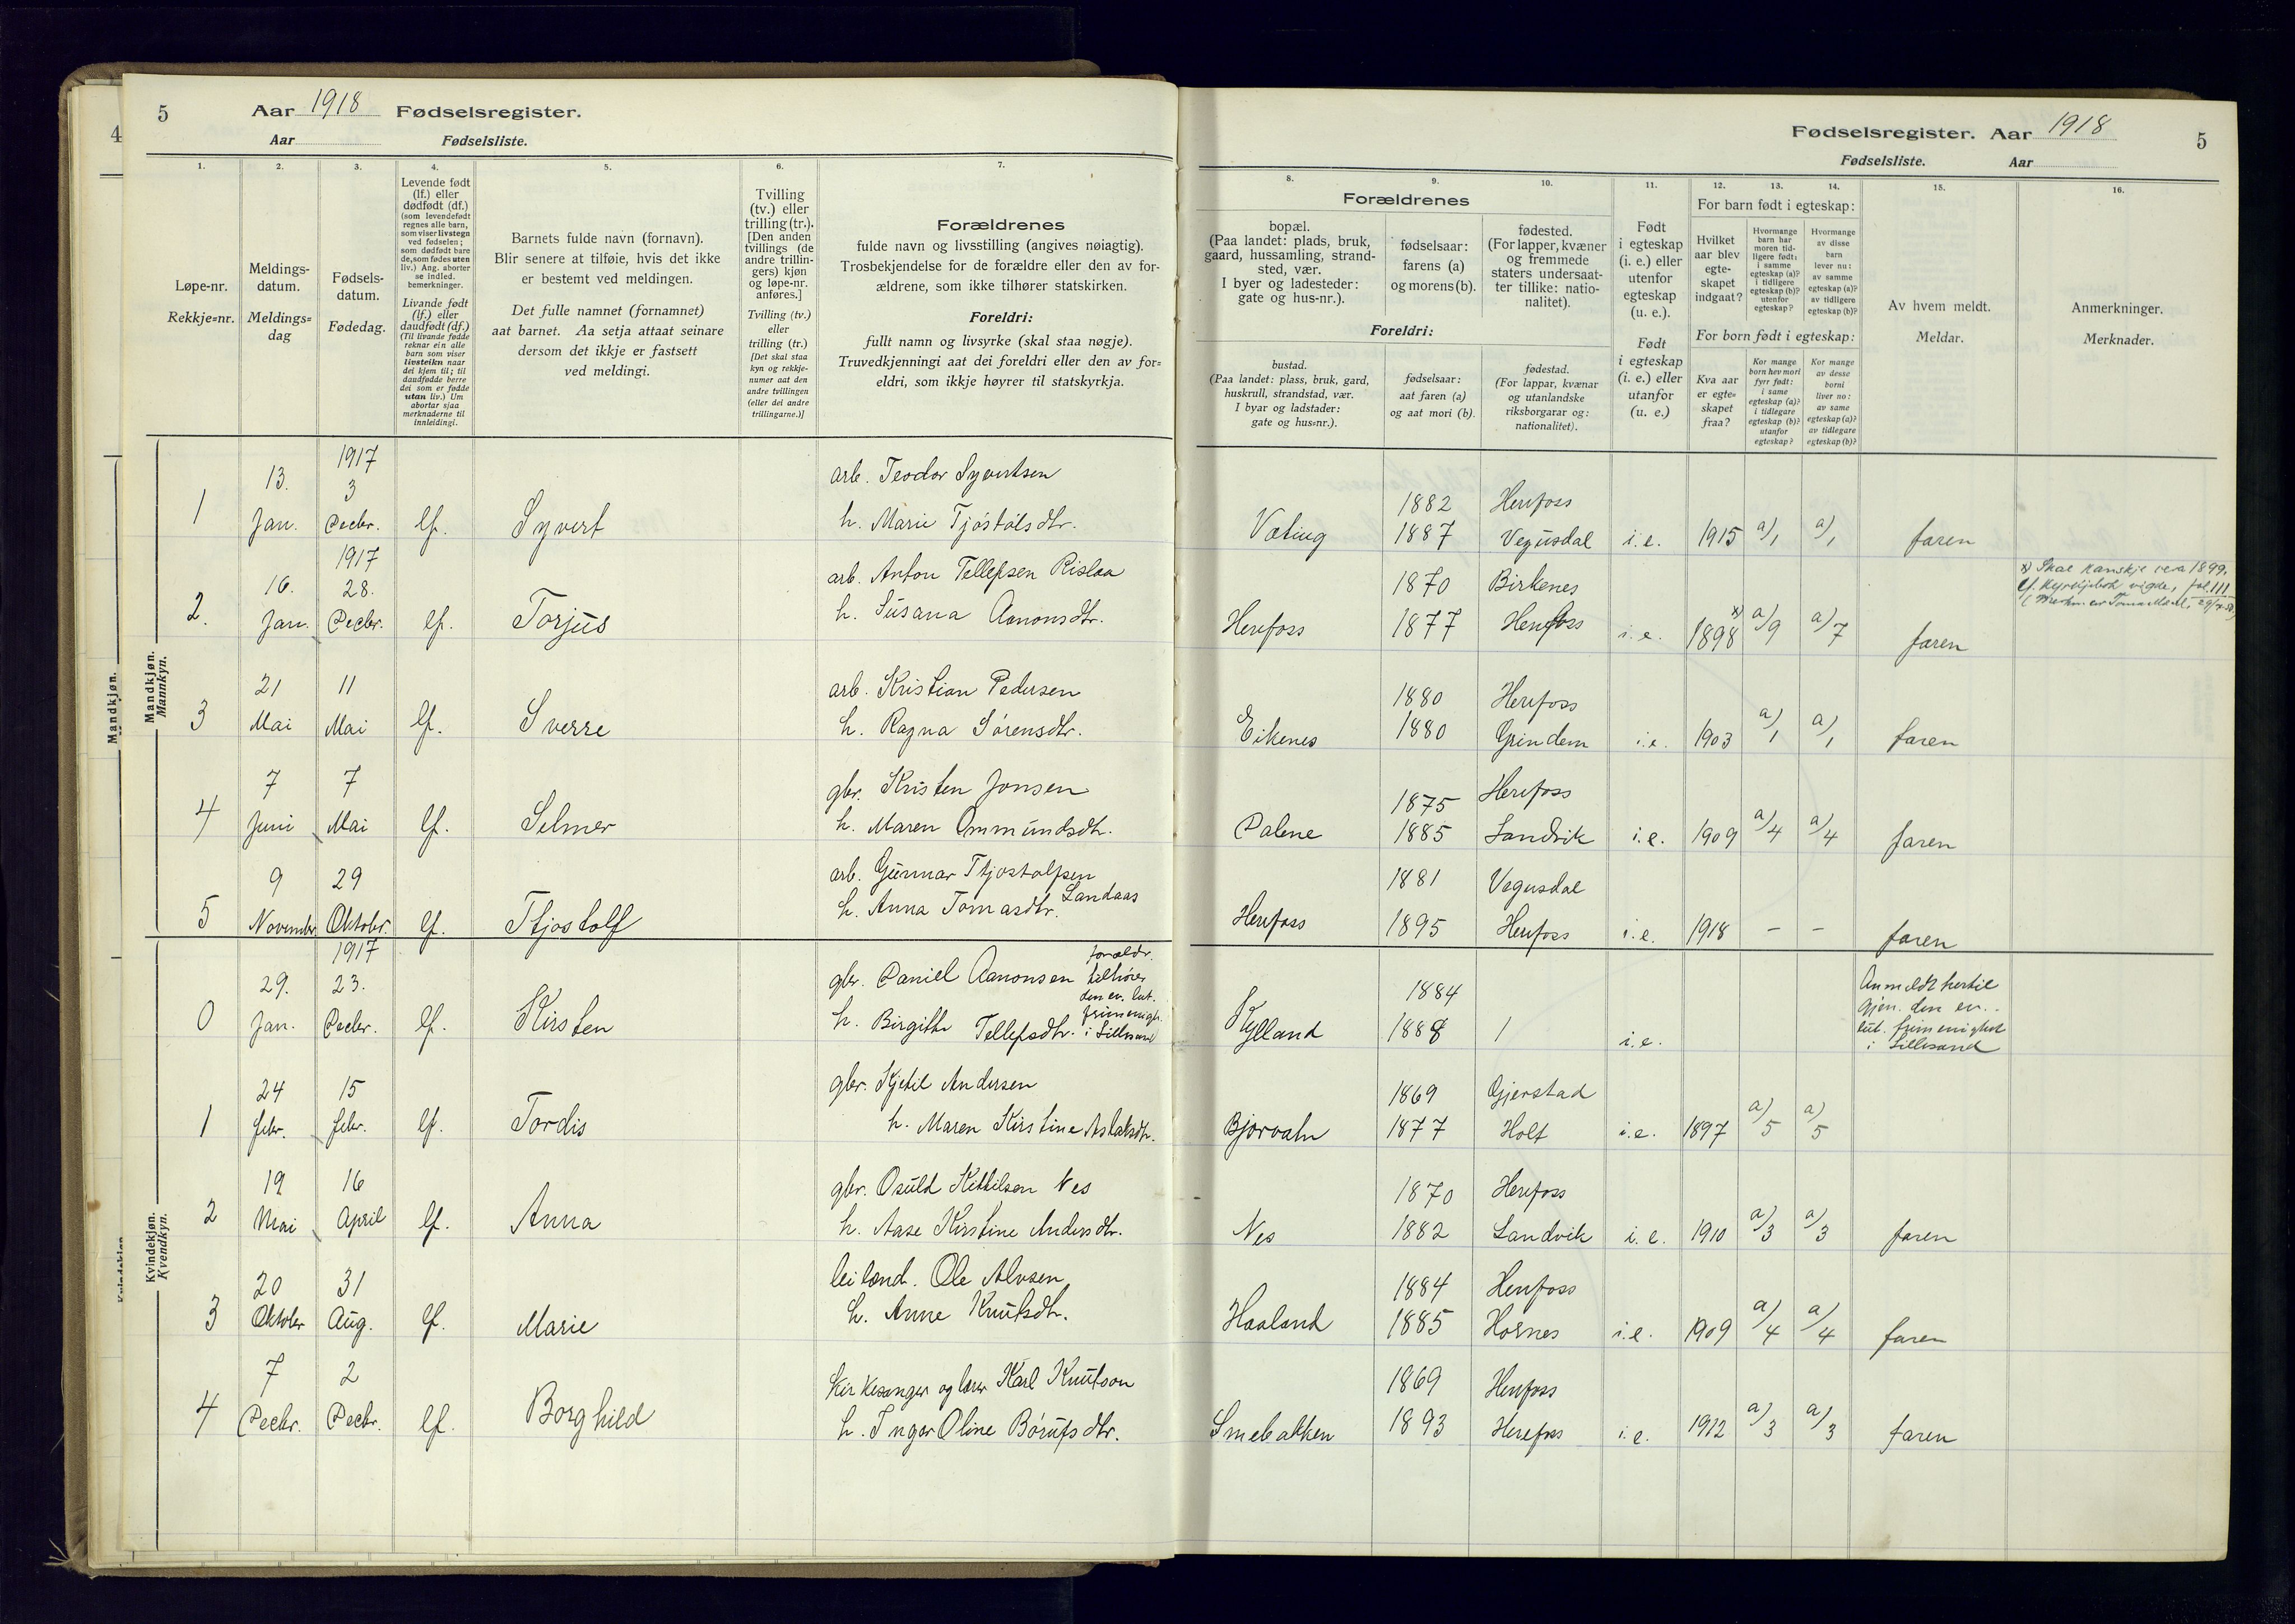 4
5
Aar 1918 Fødselsregister.
Aar Fødselsliste.
1.
2.
3.
4.
5.
6.
7.
Løpe-nr.
Rekkje=nr.
Meldings-
datum.
Meldings=
dag
Fødsels-
datum.
Fødedag.
Levende født
(lf.) eller
dødfødt (df.)
(som levendefødt
regnes alle barn,
som viser livstegn
ved fødselen;
som dødfødt bare
de, som fødes uten
liv.) Ang. aborter
se indled.
bemerkninger.
Livande født
(lf.) eller
daudfødt (df.)
(Til livande fødde
reknar ein alle
barn som viser
livsteikn naar
dei kjem til; til
daudfødde berre
dei som er fødde
utan liv.) Um
abortar sjaa
merknaderne til
innleidingi.
Barnets fulde navn (fornavn).
Blir senere at tilføie, hvis det ikke
er bestemt ved meldingen.
Det fulle namnet (fornamnet)
aat barnet. Aa setja attaat seinare
dersom det ikkje er fastsett
ved meldingi.
Tvilling
(tv.) eller
trilling (tr.).
[Den anden
tvillings (de
andre trillin-
gers) kjøn
og løpe-nr.
anføres.]
Tvilling (tv.)
eller
trilling (tr.)
[Det skal staa
kyn og rekkje-
numer aat den
andre tvillingen
(eller dei andre
trillingarne.)]
Forældrenes
fulde navn og livsstilling (angives nøiagtig).
Trosbekjendelse for de forældre eller den av for-
ældrene, som ikke tilhører statskirken.
Foreldri:
fullt namn og livsyrke (skal staa nøgje).
Truvedkjenningi aat dei foreldri eller den av for=
eldri, som ikkje høyrer til statskyrkja.
Mandkjøn.
Mandkjøn.
Mannkyn.
1 13. Jan. 1917 3 Decbr. lf. Syvert
arb. Teodor Syvertsen
h. Marie Tjóstólsdtr.
2. 16. Jan. 1917 28. Decbr. lf. Torjus
arb. Anton Tellefsen Rislaa
h. Susana Aanonsdtr.
3 21 Mai 11 Mai lf. Sverre
arb. Kristian Pedersen
h. Ragna Sórensdtr.
4 7 Juni 7 Mai lf. Selmer
gbr. Kristen Jonsen
h. Maren Ommundsdtr.
5 9 November 29 Oktober. lf. Ttjostolf
arb. Gunnar Ttjostolfsen
Landaas
h. Anna Tomasdtr.
Kvindekjøn.
Kvendkyn.
0 29. Jan. 1917 23. Decbr. lf. Kirsten
gbr. Daniel Aanonsen
h. Birgitte Tellefsdtr.
foreldr.
tilhører
den ev. lut.
frimenigh.
i Lillesand
1 24 febr. 15 febr. lf. Tordis
gbr. Kjetil Andersen
h. Maren Kirstine Aslaksdtr.
2 19 Mai 16 April lf. Anna
gbr. Osuld Kittilsen Nes
h. Aase Kirstine Andersdtr.
3 20 Oktober 31 Aug. lf. Marie
leilænd. Ole Alvsen
h. Anne Knutsdtr.
4 7 Decbr. 2 Decbr. lf. Borghild
kirkesanger og lærer Karl Knutson
h. Inger Oline Bórufsdtr.
Fødselsregister. Aar 1918
5
Fødselsliste. Aar
8.
9.
10.
11.
12.
13.
14.
15.
16.
Forældrenes
bopæl.
(Paa landet: plads, bruk,
gaard, hussamling, strand-
sted, vær.
I byer og ladesteder:
gate og hus-nr.).
fødselsaar:
farens (a)
og morens (b).
fødested.
(For lapper, kvæner
og fremmede
staters undersaat-
ter tillike: natio-
nalitet).
Foreldri:
bustad.
(Paa landet: plass, bruk, gard,
huskrull, strandstad, vær.
I byar og ladstader:
gate og hus=nr.).
fødselsaar:
aat faren (a)
og aat mori (b).
fødestad.
(For lappar, kvænar
og utanlandske
riksborgarar og:
nationalitet).
Født
i egteskap
(i. e.) eller
utenfor
egteskap
(u. e.).
Født
i egteskap
(i. e.) eller
utanfor
(u. e.)
For barn født i egteskap:
Hvilket
aar blev
egte-
skapet
indgaat?
Hvormange
barn har
moren tid-
ligere født:
i samme
egteskap (a)?
i tidligere
egteskap (b)?
utenfor
egteskap?
Hvormange
av disse
barn
lever nu:
av samme
egteskap (a)?
av tidligere
egteskap (b)?
For born født i egteskap:
Kva aar
er egte=
skapet
fraa?
Kor mange
born hev mori
fyrr født:
i same
egteskap (a)?
i tidlegare
egteskap (b)?
utanfor
egteskap?
Kor mange
av desse
borni
liver no:
av same
egteskap (a)?
av tidlegare
egteskap (b)?
Av hvem meldt.
Meldar.
Anmerkninger.
Merknader.
1882 Herefoss
Væting 1887 Vegusdal i. e. 1915 a/1 a/1 faren
1870 Birkenes
Herefoss 1877 Herefoss i. e. 1898 x) a/9 a/7 faren
x) Skal kanskje vera 1899,
1880 Herefoss
Eikenes 1880 Grindem i. e. 1903 a/1 a/1 faren
1875 Herefoss
Dalene 1885 Landvik i. e. 1909 a/4 a/4 faren
1881 Vegusdal
Herefoss 1895 Herefoss i. e. 1918 - - faren
1884
Kylland 1888 / i. e.
Anmeldt hertil
gjen. den ev.
lut. frimenighet
i Lillesand
1869 Gjerstad
Bjorvatn 1877 Holt i. e. 1897 a/5 a/5
1870 Herefoss
Nes 1882 Landvik i. e. 1910 a/3 a/3 faren
1884 Herefoss
Haaland 1885 Hornes i. e. 1909 a/4 a/4 faren
1869 Herefoss
Smebakken 1893 Herefoss i. e. 1912 a/3 a/3 faren